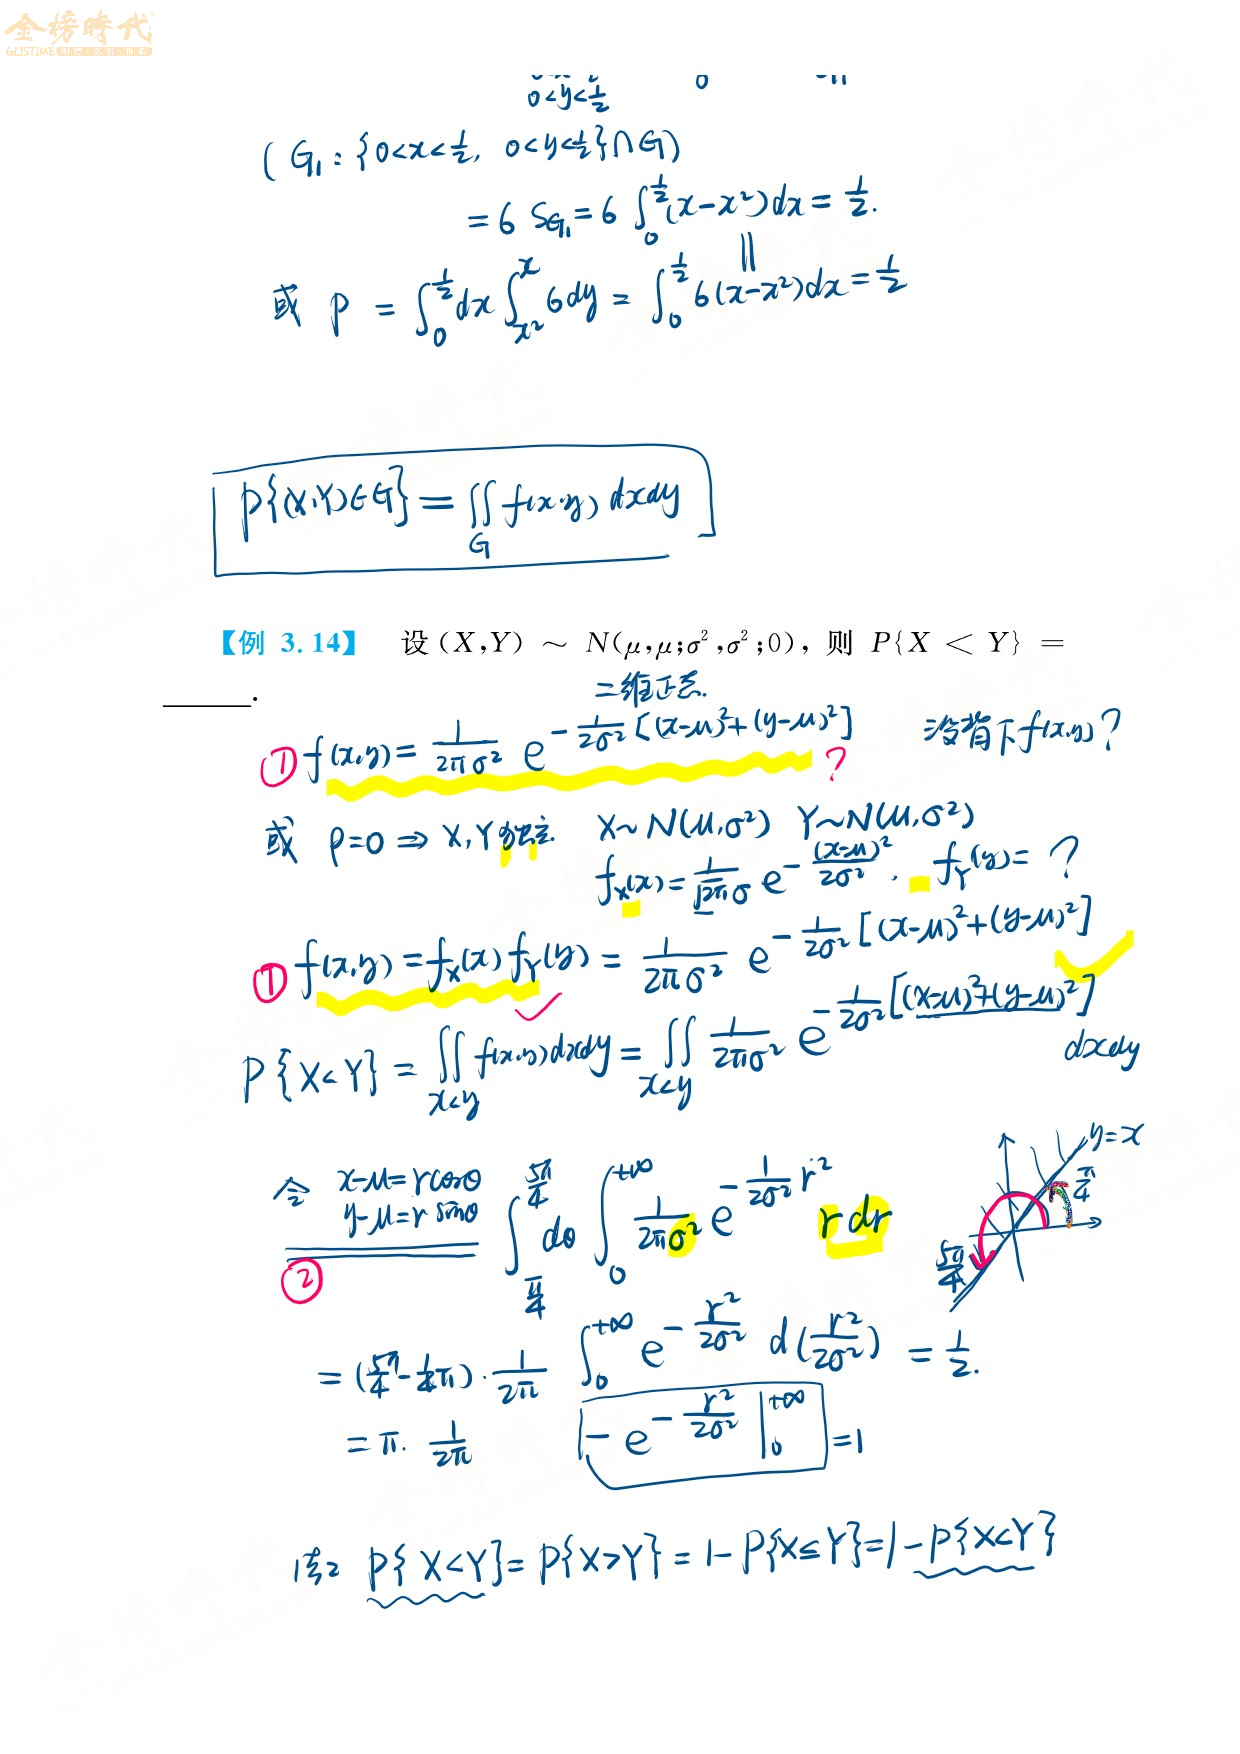 金榜時代
0<y<1/2
(G₁:{0<x<1/2, 0<y<1/2}∩G)
=6 S_{G₁}=6∫₀^{1/2}(x-x²)dx=1/2.
或 P = ∫₀^{1/2}dx∫_{x²}^{x}6dy = ∫₀^{1/2}6(x-x²)dx=1/2
P{(X,Y)∈G}=∬_G f(x,y)dxdy
【例 3.14】 设(X,Y) ~ N(μ,μ;σ²,σ²;0), 则 P{X < Y} =
______.
二维正态.
① f(x,y)=1/(2πσ²) e^{-1/(2σ²)[(x-μ)²+(y-μ)²]} ? 没背下f(x,y)?
或 ρ=0⇒X,Y独立. X~N(μ,σ²) Y~N(μ,σ²)
f_X(x)=1/(√(2π)σ) e^{-(x-μ)²/(2σ²)}, f_Y(y)=?
① f(x,y)=f_X(x)f_Y(y)=1/(2πσ²) e^{-1/(2σ²)[(x-μ)²+(y-μ)²]}
P{X<Y}=∬_{x<y}f(x,y)dxdy=∬_{x<y}1/(2πσ²) e^{-1/(2σ²)[(x-μ)²+(y-μ)²]}dxdy
令 x-μ=rcosθ
y-μ=r sinθ
② ∫_{π/4}^{5π/4}dθ∫₀^{+∞}1/(2πσ²) e^{-1/(2σ²)r²} r dr
y=x
π/4
5π/4
=(5π/4-1/4π)·1/(2π) ∫₀^{+∞}e^{-r²/(2σ²)} d(r²/(2σ²)) =1/2.
=π·1/(2π) -e^{-r²/(2σ²)}|₀^{+∞}=1
法2 P{X<Y}=P{X>Y}=1-P{X≤Y}=1-P{X<Y}